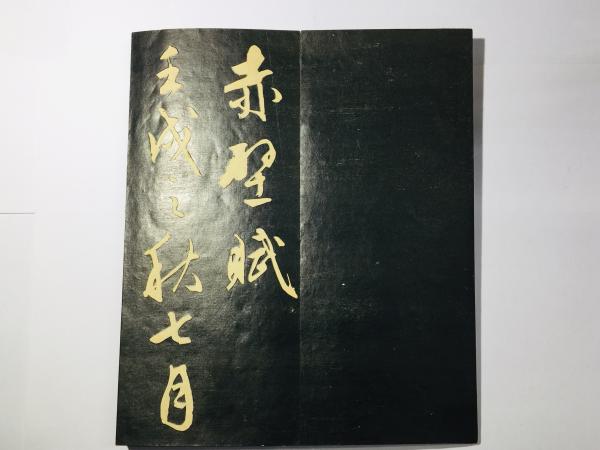 赤壁賦
壬戌之秋七月